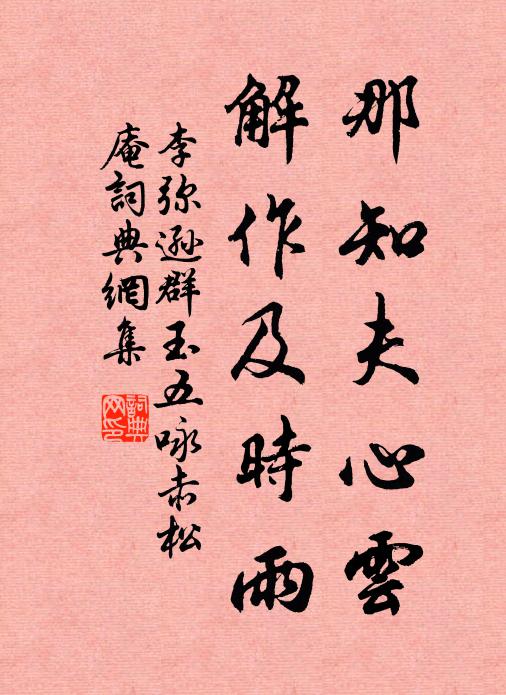 那知夫心雲
解作及時雨
李弥遜群玉五咏赤松
庵詞典網集
詞典網印